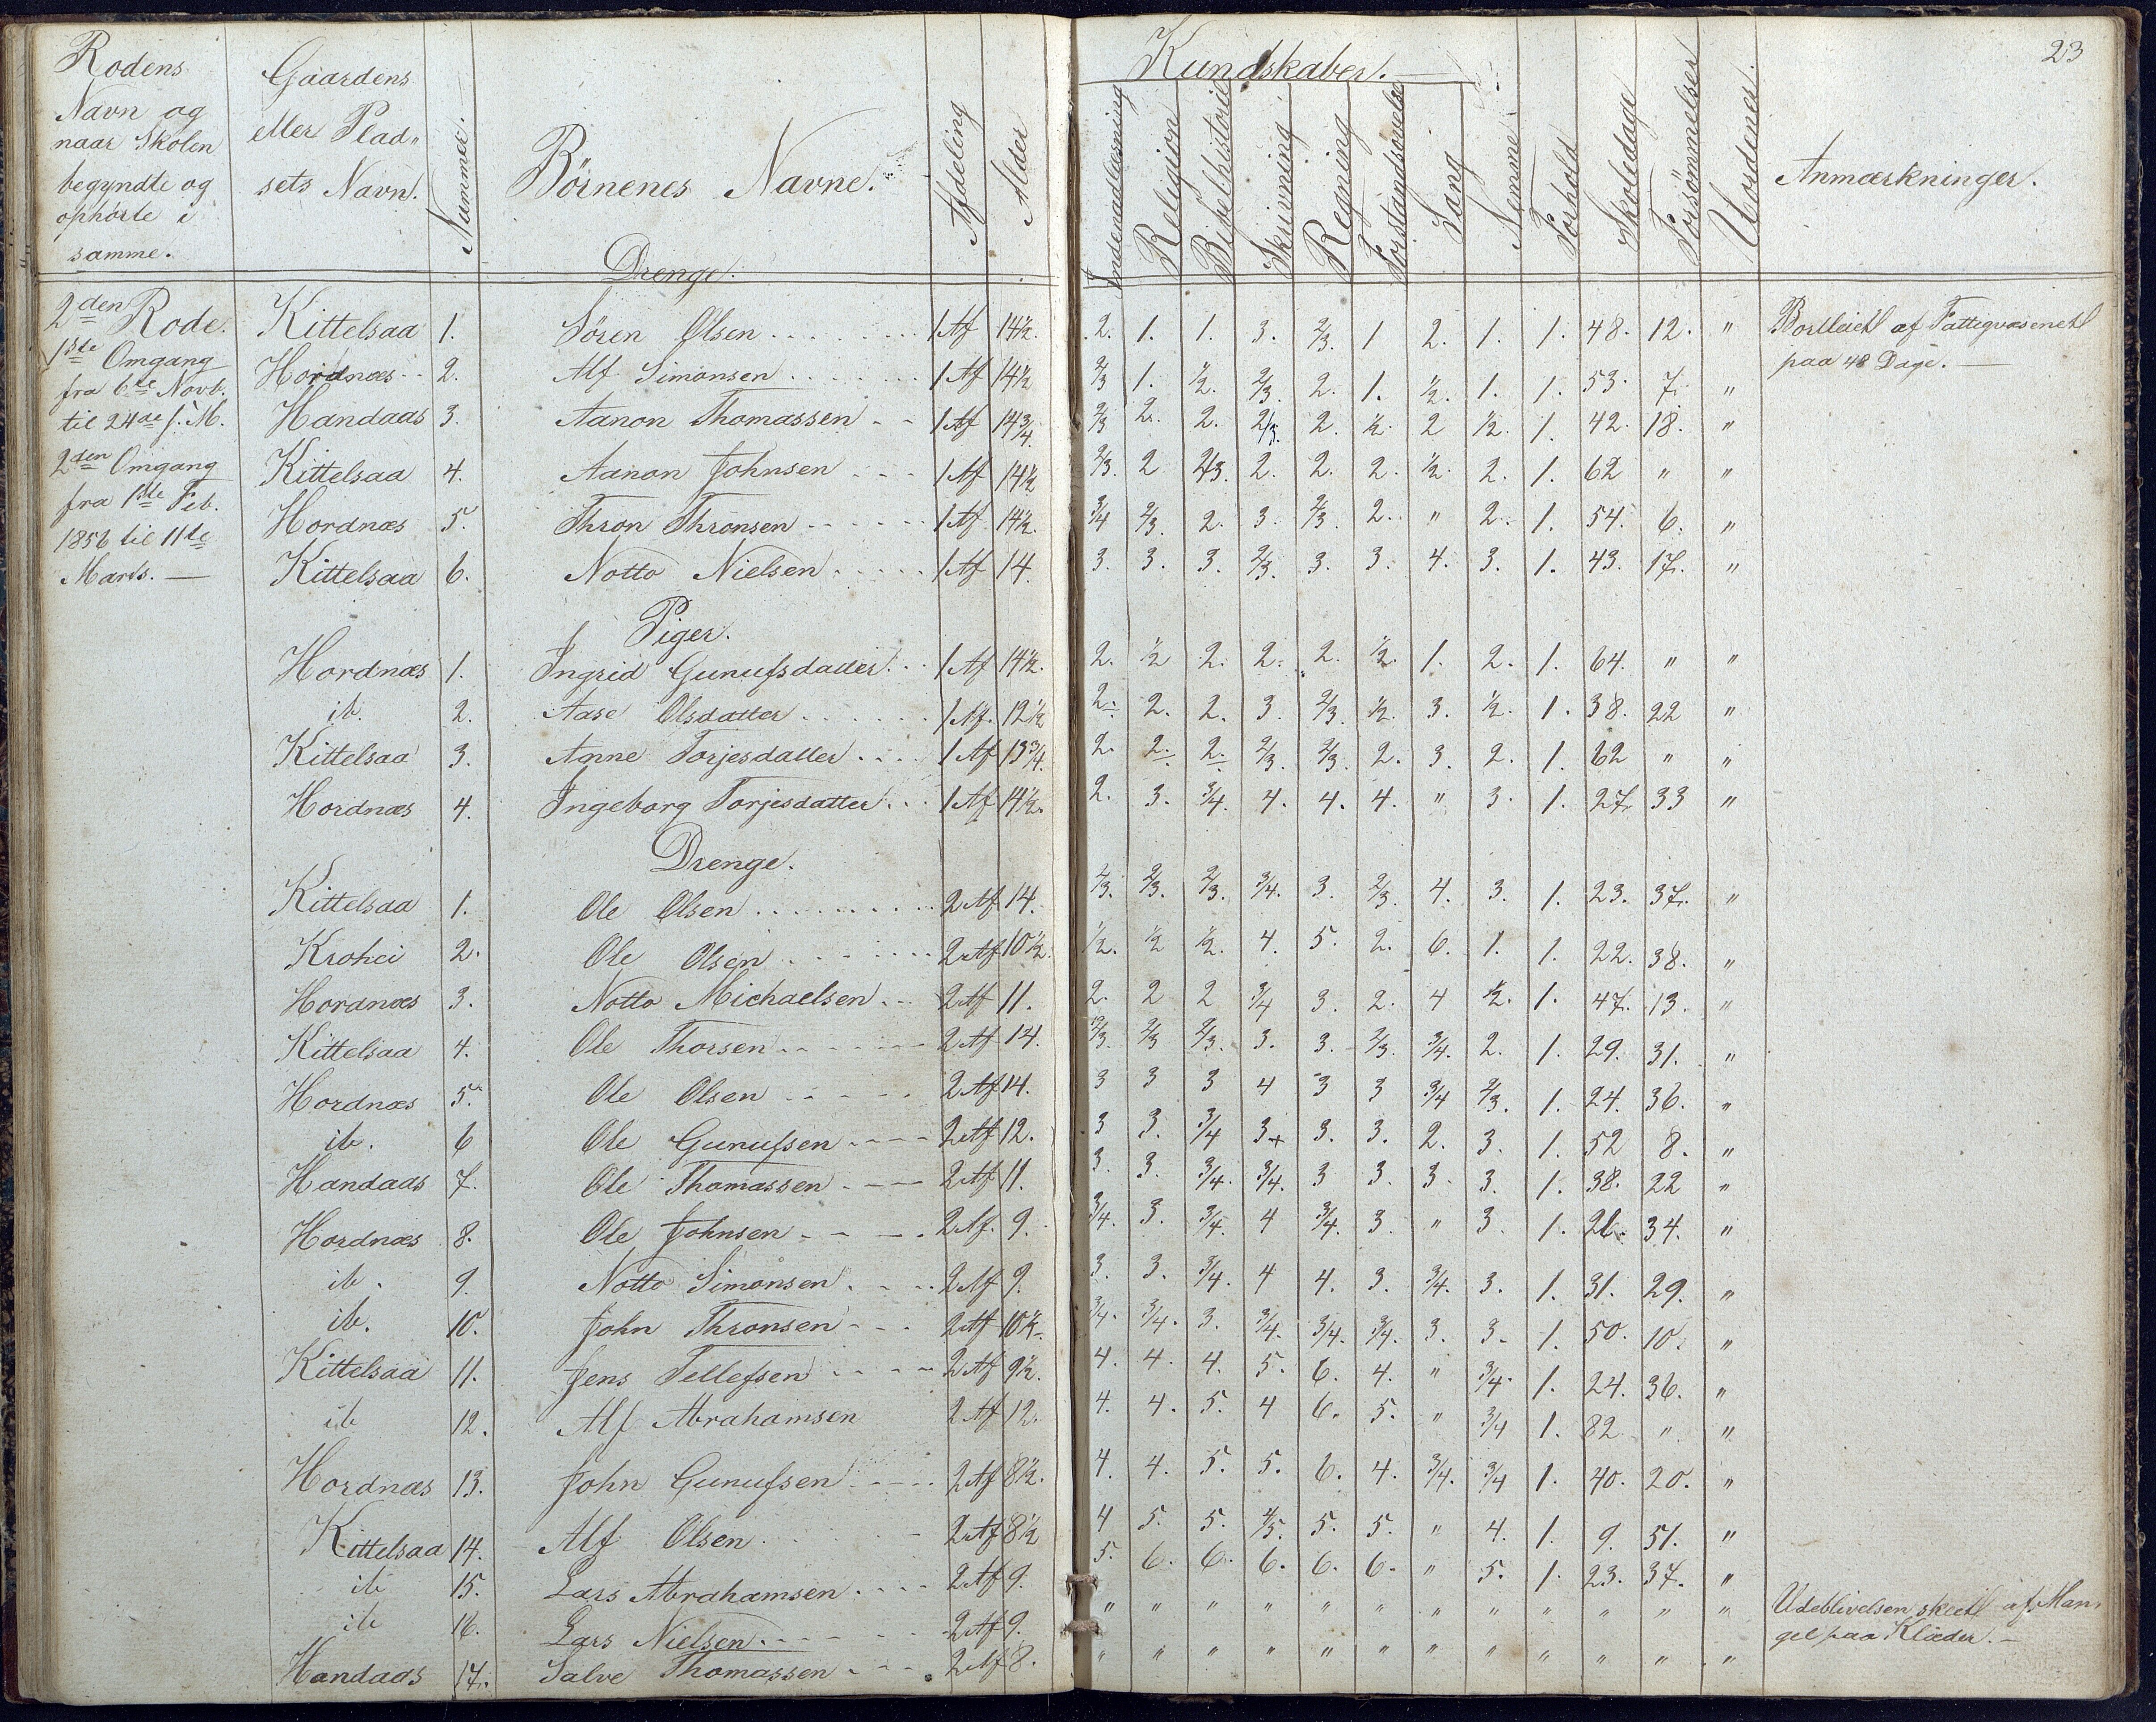 23
Rodens Navn og naar Skolen begyndte og ophörte i samme. | Gaardens eller Pladsets Navn. | Nummer. | Börnenes Navne. | Afdeling | Alder | Kundskaber. | Indenadlæsning | Religion | Bibelhistorie | Skrivning | Regning | Forstandsøvelse | Sang | Nemme | Forhold | Skoledage | Forsømmelser | Uordener. | Anmærkninger.
Drenge.
2den Rode. | Kittelsaa | 1. | Sören Olsen | 1 Af | 14½. | 2. | 1. | 1. | 3. | 2/3. | 1 | 2. | 1. | 1. | 48. | 12. | " | Bortleiet af Fattigvæsenet
paa 48 Dage. —
1ste Omgang | Hordnæs | 2. | Alf Simonsen | 1 Af | 14½ | 2/3 | 1. | ½. | 2/3. | 2. | 1. | ½. | 1. | 1. | 53. | 7. | "
fra 6te Novb. til 24de s. M. | Handaas | 3. | Aanon Thomassen | 1 Af | 14¾. | 2/3 | 2. | 2. | 2/3. | 2. | ½. | 2 | ½. | 1. | 42. | 18. | "
2den Omgang | Kittelsaa | 4. | Aanon Johnsen | 1 Af | 14½ | 2/3. | 2 | 2/3. | 2. | 2. | 2. | ½. | 2. | 1. | 62 | " | "
fra 1ste Feb. | Hordnæs | 5. | Thron Thronsen | 1 Af. | 14½. | 3/4 | 2/3. | 2. | 3. | 2/3. | 2. | " | 2. | 1. | 54. | 6. | "
1856 til 11te
Marts. — | Kittelsaa | 6. | Notto Nielsen | 1 Af | 14. | 3. | 3. | 3. | 2/3. | 3. | 3. | 4. | 3. | 1. | 43. | 17. | "
Piger.
Hordnæs | 1. | Ingrid Gunufsdatter | 1 Af | 14½. | 2. | ½ | 2. | 2. | 2. | ½. | 1. | 2. | 1. | 64. | " | "
ib. | 2. | Aase Olsdatter | 1 Af. | 12½ | 2. | 2. | 2. | 3. | 2/3. | ½. | 3. | ½. | 1. | 38. | 22 | "
Kittelsaa | 3. | Anne Torjesdatter | 1 Af | 13¾. | 2. | 2. | 2. | 2/3. | 2/3. | 2. | 3. | 2. | 1. | 62 | " | "
Hordnæs | 4. | Ingeborg Torjesdatter | 1 Af | 14½. | 2. | 3. | 3/4. | 4. | 4. | 4. | " | 3. | 1. | 27. | 33 | "
Drenge.
Kittelsaa | 1. | Ole Olsen | 2 Af | 14. | 2/3. | 2/3. | 2/3. | 3/4. | 3. | 2/3. | 4. | 3. | 1. | 23. | 37. | "
Krohei | 2. | Ole Olsen | 2 Af | 10½. | ½. | ½ | ½. | 4. | 5. | 2. | 6. | 1. | 1. | 22. | 38. | "
Hordnæs | 3. | Notto Michaelsen | 2 Af | 11. | 2. | 2 | 2 | 3/4 | 3. | 2. | 4 | ½. | 1. | 47. | 13. | "
Kittelsaa | 4. | Ole Thorsen | 2 Af | 14. | 2/3. | 2/3 | 2/3. | 3. | 3. | 2/3. | 3/4. | 2. | 1. | 29. | 31. | "
Hordnæs | 5. | Ole Olsen | 2 Af | 14. | 3 | 3 | 3 | 4 | 3 | 3 | 3/4 | 2/3. | 1. | 24. | 36. | "
ib. | 6 | Ole Gunufsen | 2 Af | 12. | 3 | 3. | 3/4 | 3+ | 3. | 3. | 2. | 3. | 1. | 52 | 8. | "
Handaas | 7. | Ole Thomassen | 2 Af | 11. | 3. | 3. | 3/4. | 3/4. | 3 | 3. | 3. | 3. | 1. | 38. | 22 | "
Hordnæs | 8. | Ole Johnsen | 2 Af. | 9. | 3/4. | 3. | 3/4. | 4 | 3/4. | 3. | " | 3. | 1. | 26. | 34. | "
ib. | 9. | Notto Simonsen | 2 Af | 9. | 3. | 3. | 3/4. | 4 | 4. | 3. | 3/4. | 3. | 1. | 31. | 29. | "
ib. | 10. | John Thronsen | 2 Af | 10½. | 3/4. | 3/4. | 3. | 3/4. | 3/4. | 3/4. | 3. | 3. | 1. | 50. | 10. | "
Kittelsaa | 11. | Jens Tellefsen | 2 Af | 9½. | 4. | 4. | 4. | 5. | 6. | 4. | " | 3/4. | 1. | 24. | 36. | "
ib | 12. | Alf Abrahamsen | 2 Af | 12. | 4. | 4. | 5. | 4 | 6. | 5. | " | 3/4 | 1. | 82 | " | "
Hordnæs | 13. | John Gunufsen | 2 Af | 8½. | 4. | 4. | 5. | 5. | 6. | 4. | 3/4. | 3/4 | 1. | 40. | 20. | "
Kittelsaa | 14. | Alf Olsen | 2 Af | 8½ | 4 | 5. | 5. | 4/5. | 5. | 5. | " | 4. | 1. | 9. | 51. | "
ib | 15. | Lars Abrahamsen | 2 Af | 9. | 5. | 6. | 6. | 6. | 6. | 6. | " | 5. | 1. | 23. | 37. | "
ib | 16. | Lars Nielsen | 2 Af | 9. | " | " | " | " | " | " | " | " | " | " | " | " | Udeblivelsen skeet af Man-
gel paa Klæder. —
Handaas | 17. | Salve Thomassen | 2 Af | 8. | " | " | " | " | " | " | " | " | " | " | " | "